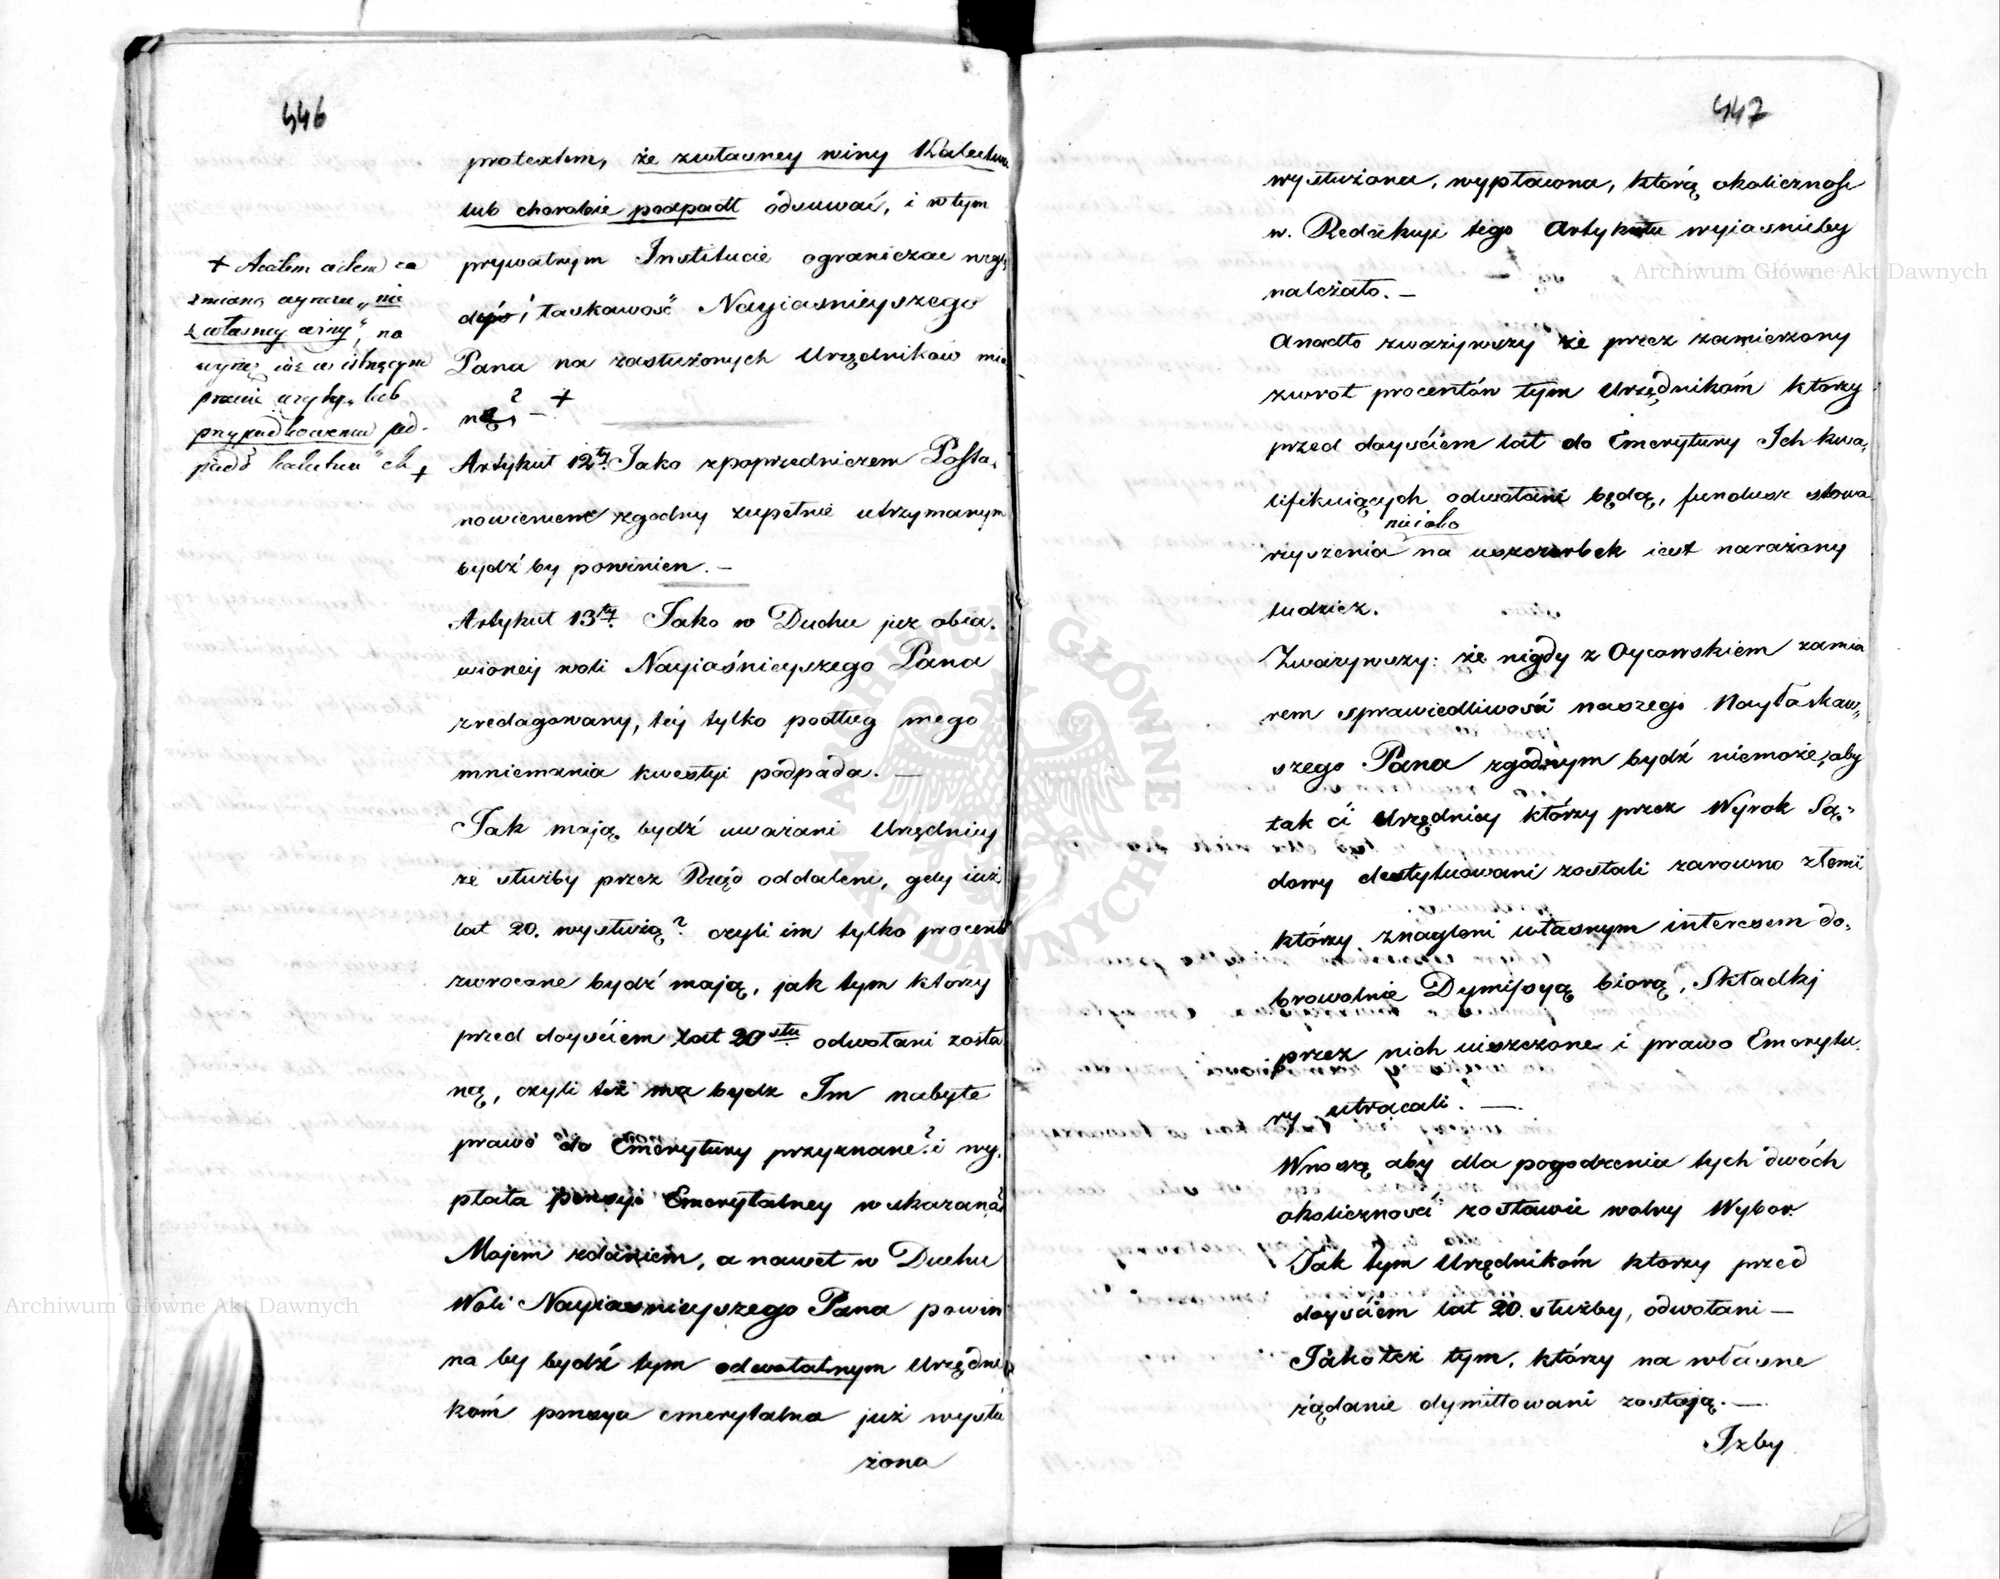 446
protextem, że zwłasney winy Kalectwu
lub chorobie podpadł odsuwać, i w tym
prywatnym Institucie ograniczać wzglę
dy i łaskawość Nayiasnieyszego
Pana na zasłużonych Urzędników mia
ną? — +
+ Atoli
zmianą wyrazu „nie
z własney winy", na
wyraz iaki w
prawie użyty „lub
przypadkowemu pod-
padł kalectwu" +
Artykuł 12ty. Jako zpoprzedniczem Posta,
nowieniem zgodny zupełnie utrzymanym
bydź by powinien. —
Artykuł 13ty. Jako w Duchu już obia,
wioney woli Nayiaśnieyszego Pana
zredagowany, tey tylko podług mego
mniemania kwestyi podpada. —
Jak mają bydź uważani Urzędnicy
ze służby przez Rząd oddaleni, gdy iuż
lat 20. wysłużą? czyli im tylko procent
zwrocone bydź mają, jak tym którzy
przed doyściem lat 20stu odwołani zosta
ną, czyli też ma bydz Im nabyte
prawo do Emerytury przyznane? i wy,
płata pensyi Emerytalney wskazaną?
Mojem zdaniem, a nawet w Duchu
Woli Nayiasnieyszego Pana powin
na by bydź tym odwołalnym Urzędni
kom pensya emerytalna już wysłu
żona
447
wysłużona, wypłacona, którą okoliczność
w. Redakuyi tego Artykułu wyiasnieby
należało. —
Anadto zwazywszy że przez zamierzony
zwrot procentów tym Urzędnikom którzy
przed doyściem lat do Emerytury Ich kwa,
lifikuiących odwołani będą, fundusz stowa
rzyszenia nieiako na uszczerbek iest narażony
tudziez.
Zwazywszy: że nigdy z Oycowskiem zamia
rem sprawiedliwości naszego Nayłaskaw,
szego Pana zgodnym bydź niemoże, aby
tak ci Urzędnicy którzy przez Wyrok Są,
dowy destytuowani zostali zarowno z temi
którzy znagleni własnym interesem do,
browolnie Dymissyą biorą, Składki
przez nich uiszczone i prawo Emerytu,
ry utracali. —
Wnoszą aby dla pogodzenia tych dwóch
okoliczności zostawić wolny Wybor
Jak tym Urzędnikom ktorzy przed
doyściem lat 20. służby, odwołani —
Jako też tym, którzy na własne
żądanie dymittowani zostają. —
Izby
Archiwum Główne Akt Dawnych
Archiwum Główne Akt Dawnych
ARCHIWUM GŁÓWNE AKT DAWNYCH